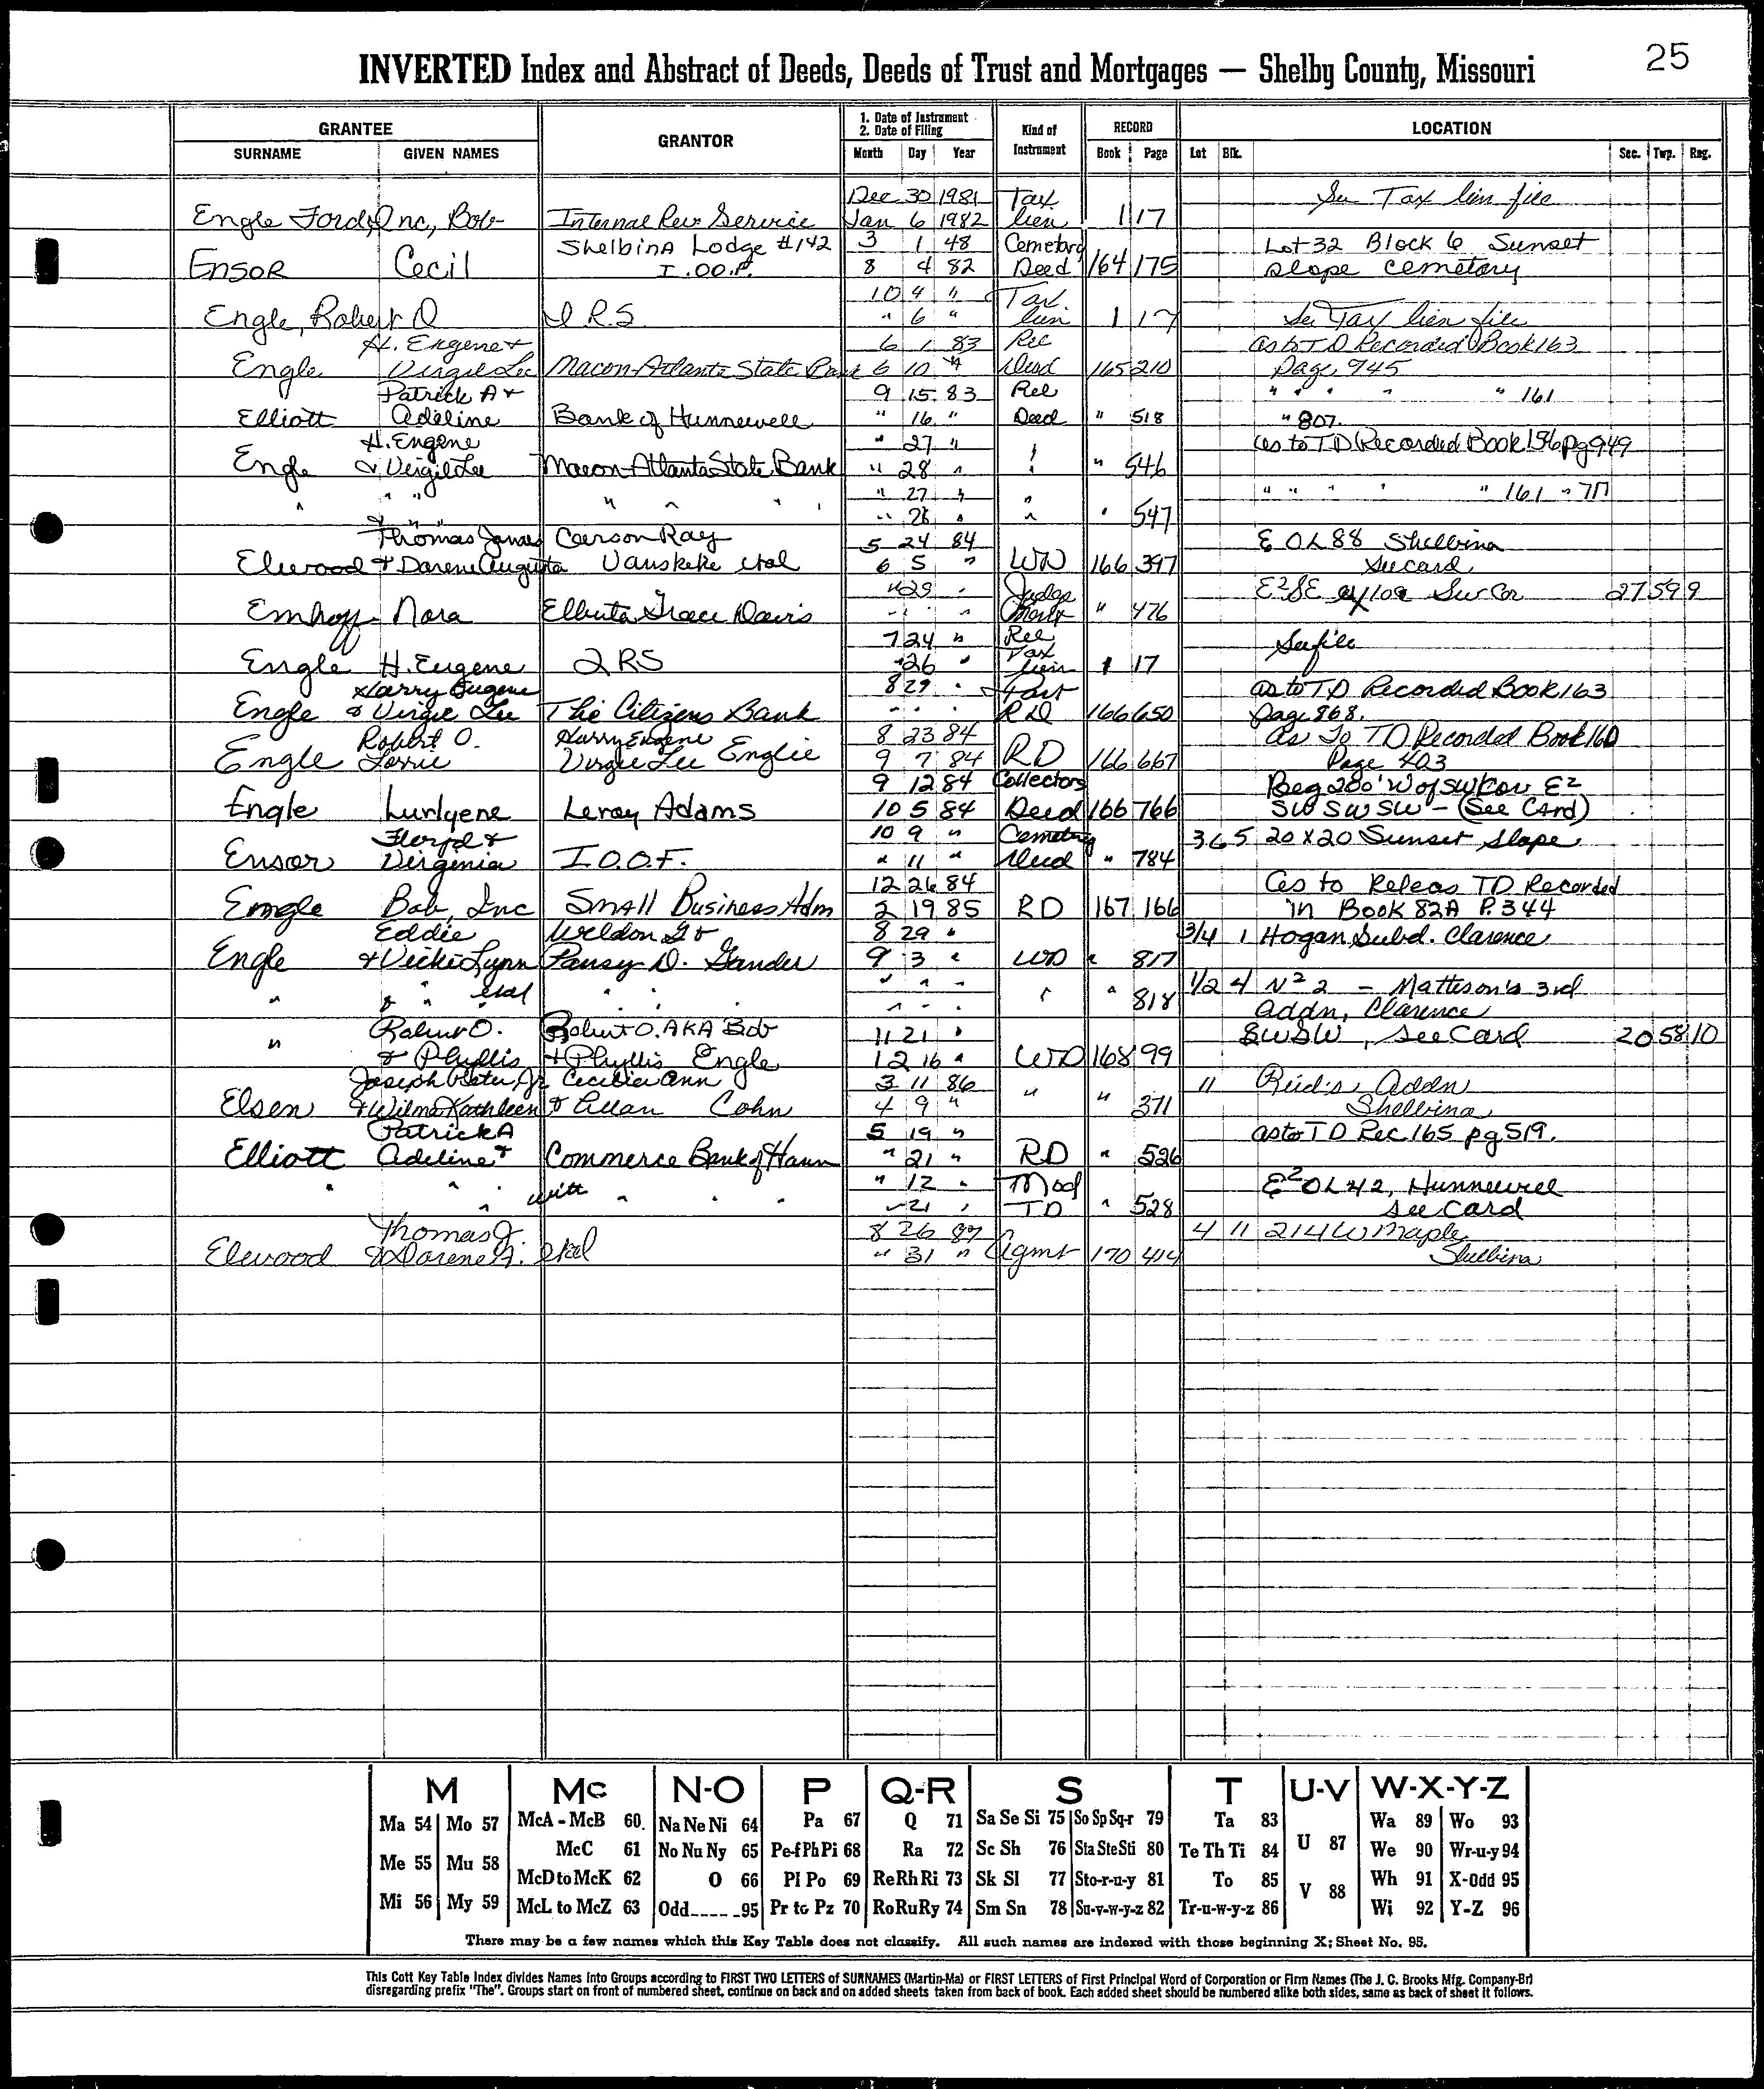 25
INVERTED Index and Abstract of Deeds, Deeds of Trust and Mortgages — Shelby County, Missouri
GRANTEE
SURNAME GIVEN NAMES
GRANTOR
1. Date of Instrument
2. Date of Filing
Month Day Year
Kind of Instrument
RECORD
Book Page
LOCATION
Lot Blk. Sec. Twp. Rng.
Dec 30 1981 Tax See Tax lien file
Engle Ford, Inc, Bob Internal Rev Service Jan 6 1982 lien 1 17
Shelbina Lodge #142 3 1 48 Cemetary Lot 32 Block 6 Sunset
Ensor Cecil I.O.O.F. 8 4 82 Deed 164 175 slope cemetary
10 4 " Tax
Engle, Robert O I.R.S. " 6 " lien 1 17 See Tax lien file
H. Eugene + 6 1 83 Rel as to TD Recorded Book 163
Engle Virgie Lee Macon-Atlanta State Bank 6 10 " Deed 165 210 Page 945
Patrick A + 9 15 83 Rel " " " " 161
Elliott Adeline Bank of Hunnewell " 16 " Deed " 518 " 807.
H. Eugene " 27 " as to TD Recorded Book 156 pg 949
Engle & Virgie Lee Macon-Atlanta State Bank " 28 " " " 546
" " " 27 " " " " " " " 161 " 717
" " " " " 28 " " " 547
Thomas James Carson Ray 5 24 84 E OL 88 Shelbina
Elwood + Darene Augusta Vanskike etal 6 5 " WD 166 397 see card
" 29 " Judge E²SE ex 10a SW Cor 27 59 9
Emhoff Nora Elberta Grace Davis " " " Mortx " 476
7 24 " Rel See file
Engle H. Eugene IRS " 26 " Tax lien 1 17
Harry Eugene 8 29 " Part as to TD Recorded Book 163
Engle & Virgie Lee The Citizens Bank " " " RD 166 650 page 868.
Robert O. Harry Eugene 8 23 84 as To TD Recorded Book 160
Engle Lorrie Virgie Lee Englie 9 7 84 RD 166 667 Page 403
9 12 84 Collectors Beg 280' W of SW Cor E²
Engle Lurlyene Leroy Adams 10 5 84 Deed 166 766 SW SW SW - (See Card)
Floyd + 10 9 " Cemetry 36 5 20 x 20 Sunset Slope
Ensor Virginia I.O.O.F. " 11 " Deed " 784
12 26 84 as to Releas TD Recorded
Engle Bob, Inc Small Business Adm 2 19 85 RD 167 166 in Book 82A P. 344
Eddie Weldon G + 8 29 " 3/4 1 Hogan Subd. Clarence
Engle + Vicki Lynn Pansy D. Gander 9 3 " WD " 817
" & " etal " " " " " " 1/2 4 N² 2 - Mattison's 3rd
" " " " 818 Addn, Clarence
Robert O. Robert O. AKA Bob 11 21 " SWSW, see Card 20 58 10
" & Phyllis + Phyllis Engle 12 16 " WD 168 99
Joseph Peter, Jr Cecilia Ann 3 11 86 11 Reid's Addn
Elsen & Wilma Kathleen & Allan Cohn 4 9 " " " 371 Shelbina
Patrick A 5 19 " as to TD Rec 165 pg 519.
Elliott Adeline + Commerce Bank of Hann " 21 " RD " 526
" " with " " " " 12 " Mod E² OL 42, Hunnewell
" 21 " TD " 528 see Card
Thomas J. 8 26 87 4 11 214 W Maple
Elwood & Darene A. etal " 31 " Agmt 170 414 Shelbina
M Mc N-O P Q-R S T U-V W-X-Y-Z
Ma 54 Mo 57 McA - McB 60. Na Ne Ni 64 Pa 67 Q 71 Sa Se Si 75 So Sp Sq-r 79 Ta 83 U 87 Wa 89 Wo 93
Me 55 Mu 58 McC 61 No Nu Ny 65 Pe-f Ph Pi 68 Ra 72 Sc Sh 76 Sta Ste Sti 80 Te Th Ti 84 We 90 Wr-u-y 94
McD to McK 62 O 66 Pl Po 69 Re Rh Ri 73 Sk Sl 77 Sto-r-u-y 81 To 85 V 88 Wh 91 X-Odd 95
Mi 56 My 59 McL to McZ 63 Odd_____95 Pr to Pz 70 Ro Ru Ry 74 Sm Sn 78 Su-v-w-y-z 82 Tr-u-w-y-z 86 Wi 92 Y-Z 96
There may be a few names which this Key Table does not classify. All such names are indexed with those beginning X; Sheet No. 95.
This Cott Key Table Index divides Names into Groups according to FIRST TWO LETTERS of SURNAMES (Martin-Ma) or FIRST LETTERS of First Principal Word of Corporation or Firm Names (The J. C. Brooks Mfg. Company-Br)
disregarding prefix "The". Groups start on front of numbered sheet, continue on back and on added sheets taken from back of book. Each added sheet should be numbered alike both sides, same as back of sheet it follows.